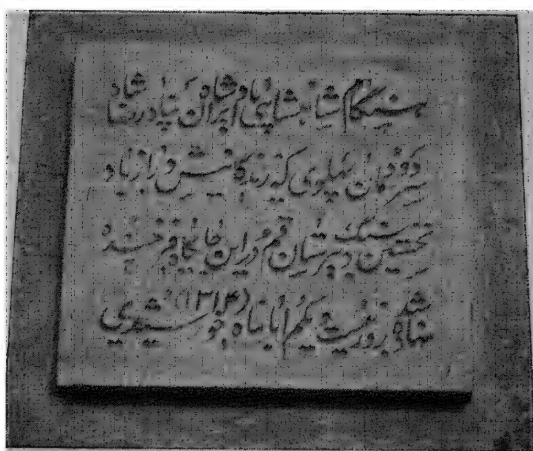 هنگام شاهنشاهی پادشاه ایران پناه رضا شاه
سر دودمان پهلوی که زندگانیش دراز باد
نخستین سنگ دبیرستان قم در این جایگاه فرخنده
نهاده شد بروز بیست و یکم آبانماه (۱۳۱۴) خورشیدی